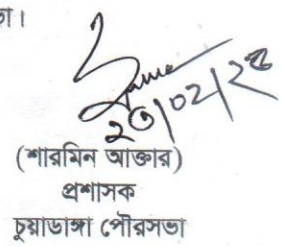 তা।
২৩/০২/২৪
(শারমিন আক্তার)
প্রশাসক
চুয়াডাঙ্গা পৌরসভা